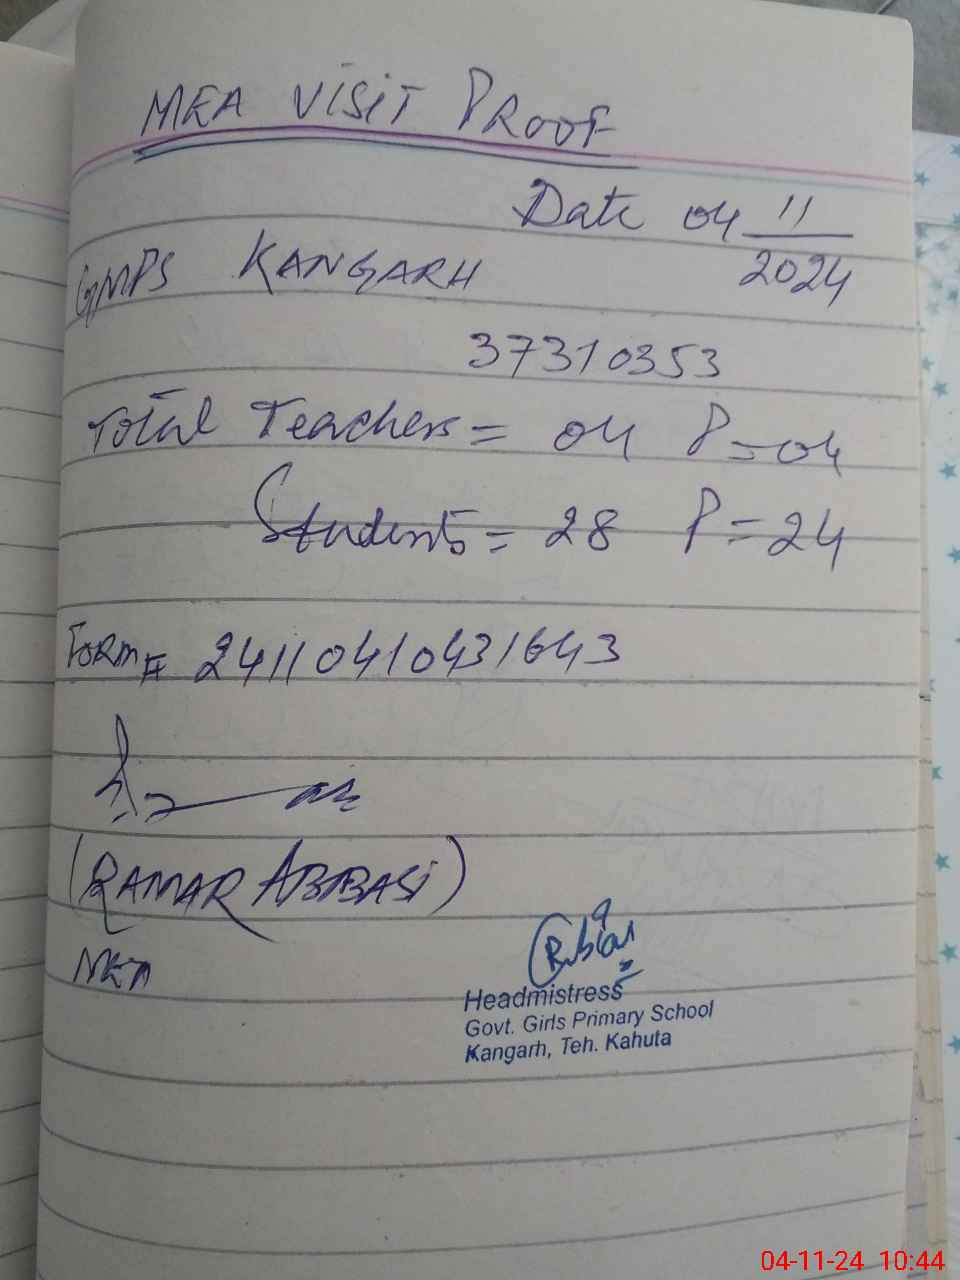 MEA VISIT PROOF
Date 04 11
2024
GMPS KANGARH
37310353
Total Teachers = 04 P = 04
Students = 28 P = 24
Form # 24110410431643
(QAMAR ABBASI)
MEA
Rubia
Headmistress
Govt. Girls Primary School
Kangarh, Teh. Kahuta
04-11-24 10:44